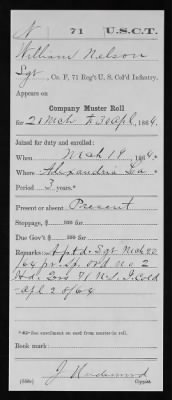 N 71 U.S.C.T.
William Nelson
Sgt, Co. F, 71 Reg't U. S. Col'd Infantry.
Appears on
Company Muster Roll
for 21 Mch to 30 Apl, 1864.
Joined for duty and enrolled:
When Mch 19, 1864.*
Where Alexandria La *
Period 3 years.*
Present or absent Present
Stoppage, $ 100 for
Due Gov't $ 100 for
Remarks: Aptd. Sgt Mch 22
/64 pr. Sp. Ord no 2
Hd. 71 U.S. I. Cold
Apl 28/64
*See enrollment on card from muster-in roll.
Book mark:
(358c) J. Underwood
Copyist.